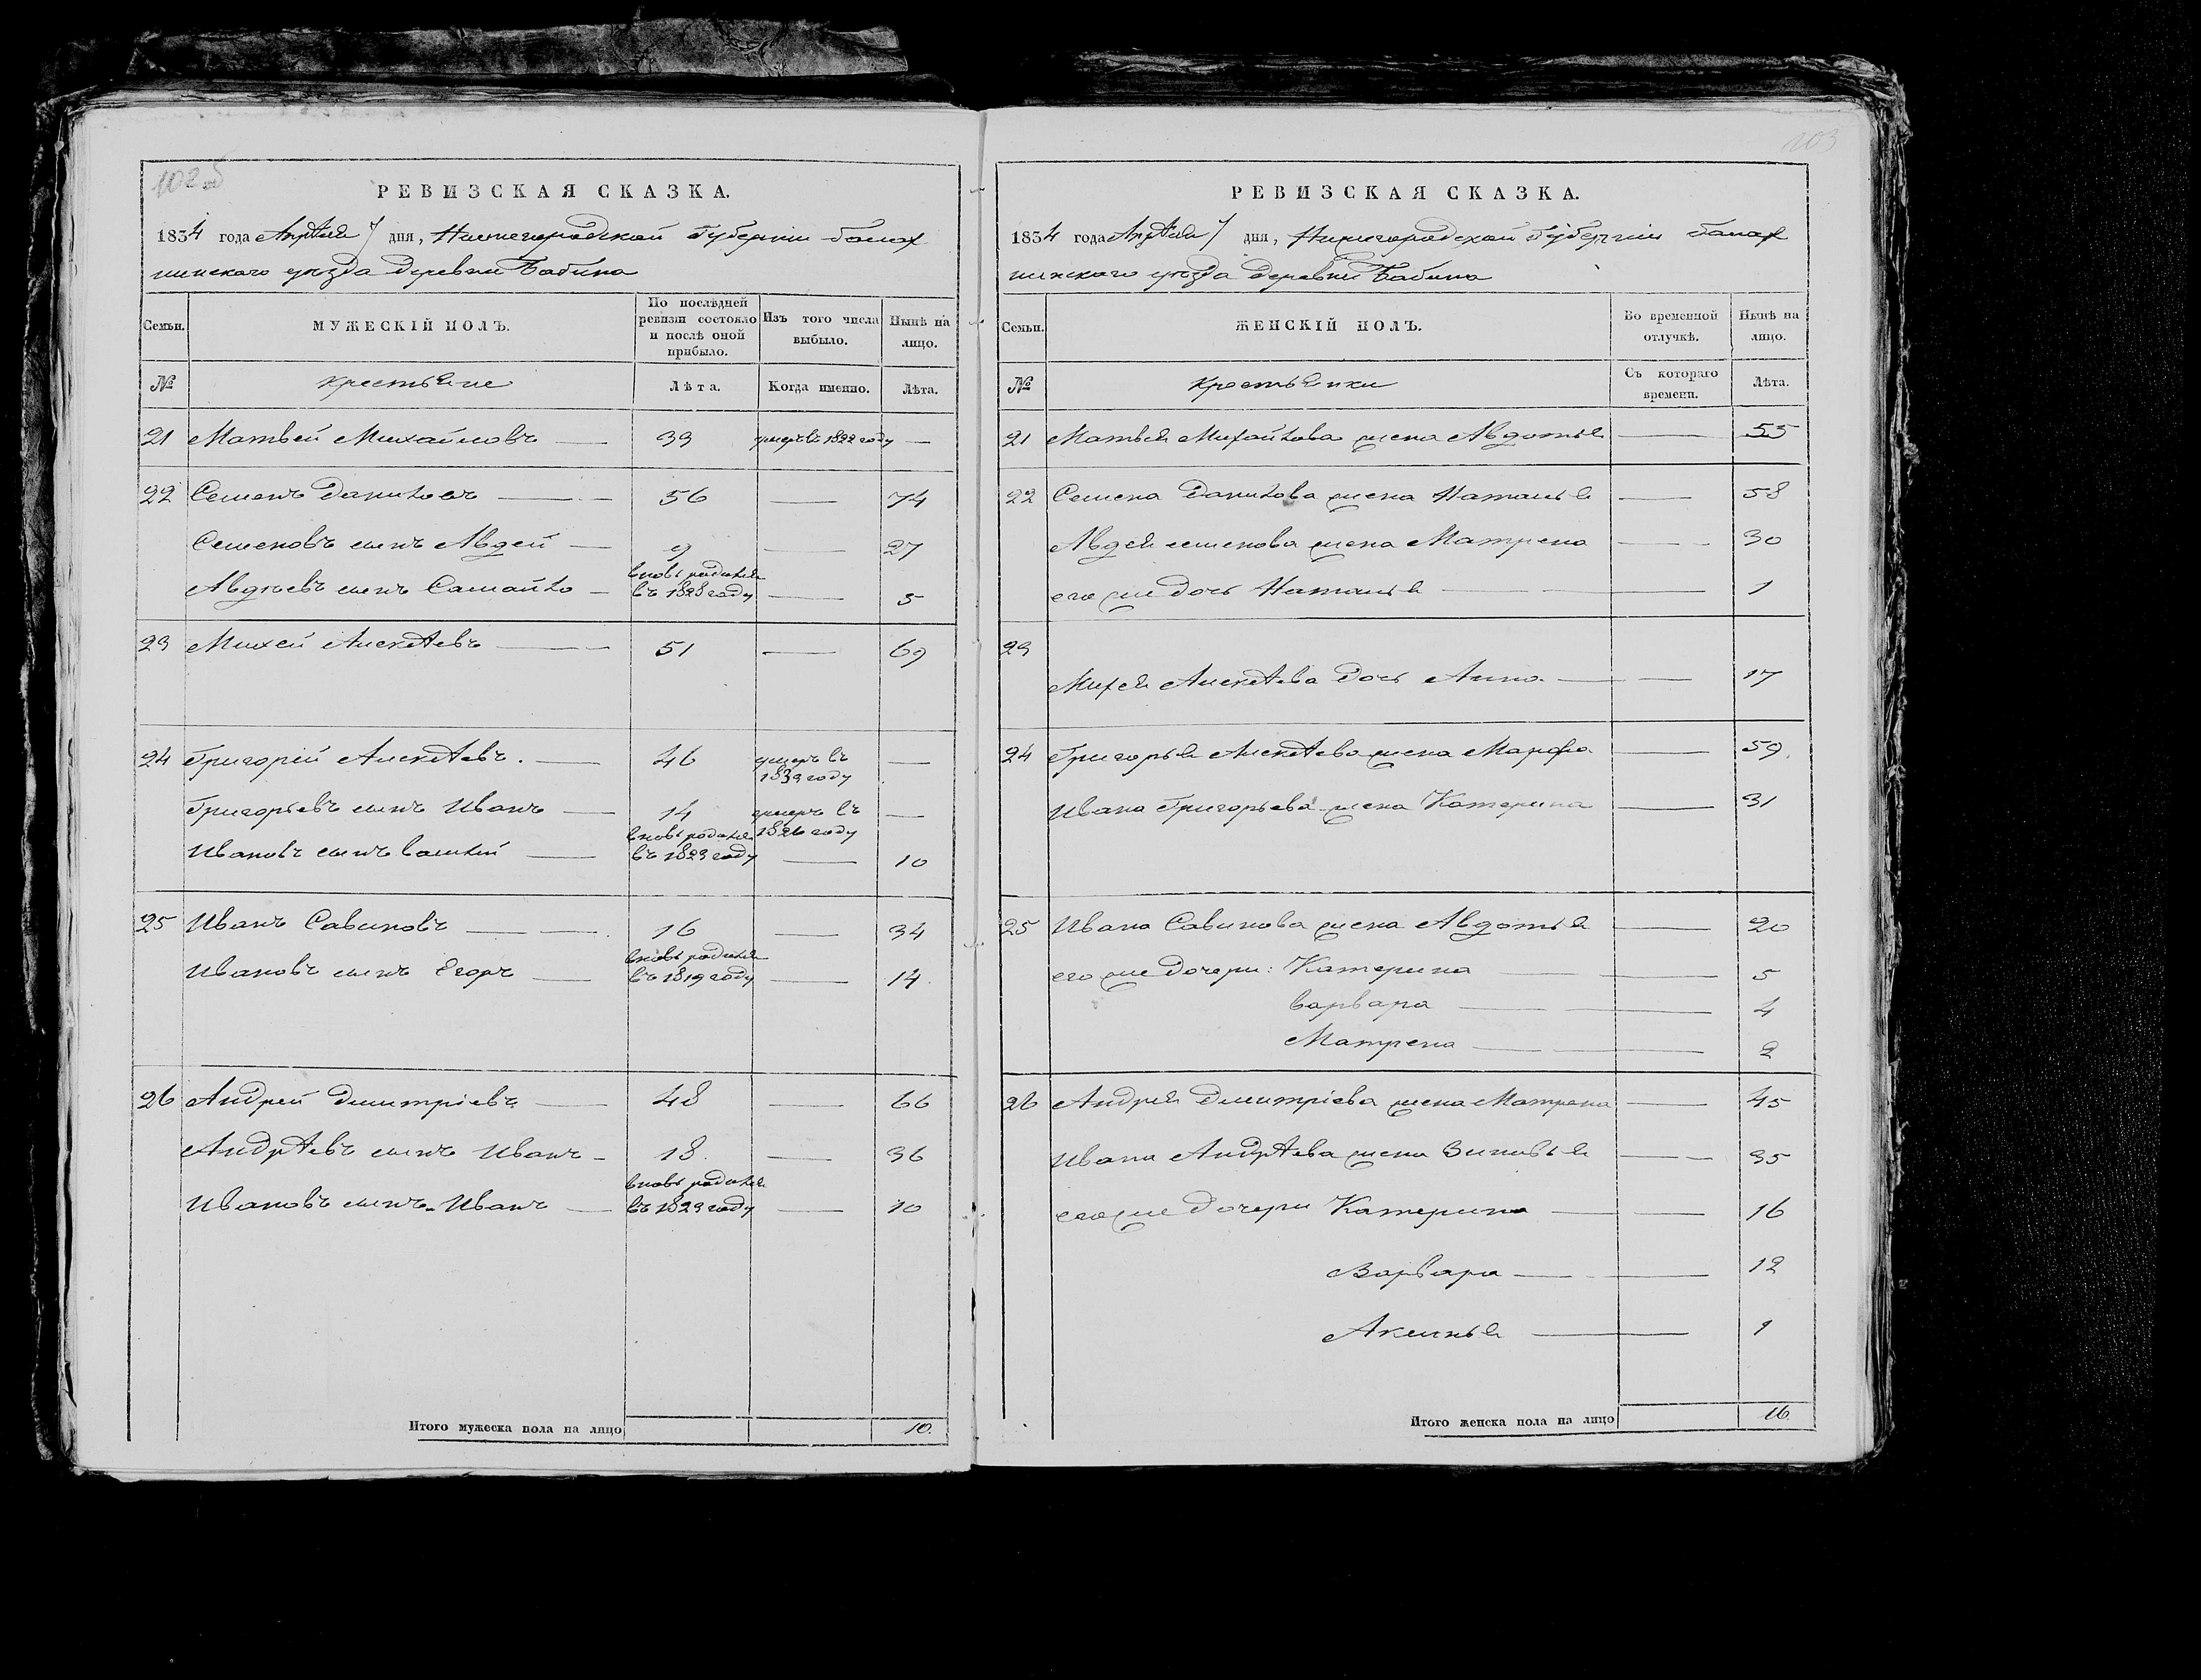 102 об
РЕВИЗСКАЯ СКАЗКА.
1834 года Апреля 7 дня, Нижегородской Губернии Балах
нинскаго уезда деревни Бабина
Семьи.
МУЖЕСКІЙ ПОЛЪ.
По последней ревизіи состояло и после оной прибыло.
Изъ того числа выбыло.
Ныне на лицо.
№
крестьяне
Лета.
Когда именно.
Лета.
21 Матвей Михайловъ — 33 умеръ въ 1822 году —
22 Семенъ Даниловъ — 56 — 74
Семеновъ сынъ Авдей — 9 — 27
вновь родился
Авдѣевъ сынъ Самойло — въ 1828 году — 5
23 Михей Алексеевъ — 51 — 69
24 Григорій Алексеевъ. — 46 умеръ въ —
1833 году
Григорьевъ сынъ Иванъ — 14 умеръ въ —
вновь родился 1826 году
Ивановъ сынъ Василий — въ 1823 году — 10
25 Иванъ Савиновъ — 16 — 34
вновь родился
Ивановъ сынъ Егоръ — въ 1819 году — 14
26 Андрей Дмитріевъ — 48 — 66
Андреевъ сынъ Иванъ — 18 — 36
вновь родился
Ивановъ сынъ Иванъ — въ 1823 году — 10
Итого мужеска пола на лицо 10.
103
РЕВИЗСКАЯ СКАЗКА.
1834 года Апреля 7 дня, Нижегородской Губерніи Балах
нинскаго уезда деревни Бабина
Семьи.
ЖЕНСКІЙ ПОЛЪ.
Во временной отлучкѣ.
Нынѣ на лицо.
№
крестьянки
Съ котораго времени.
Лѣта.
21 Матвея Михайлова жена Авдотья — 55
22 Семена Данилова жена Наталья — 58
Авдея семенова жена Матрена — 30
его же дочь Наталья — 1
23
Михея Алексеева дочь Анна — 17
24 Григорья Алексеева жена Марфа — 59
Ивана Григорьева жена Катерина — 31
25 Ивана Савинова жена Авдотья — 20
его же дочери: Катерина — 5
Варвара — 4
Матрена — 2
26 Андрея Дмитріева жена Матрена — 45
Ивана Андреева жена Зиновья — 35
его же дочери Катерина — 16
Варвара — 12
Аксинья — 1
Итого женска пола на лицо 16.